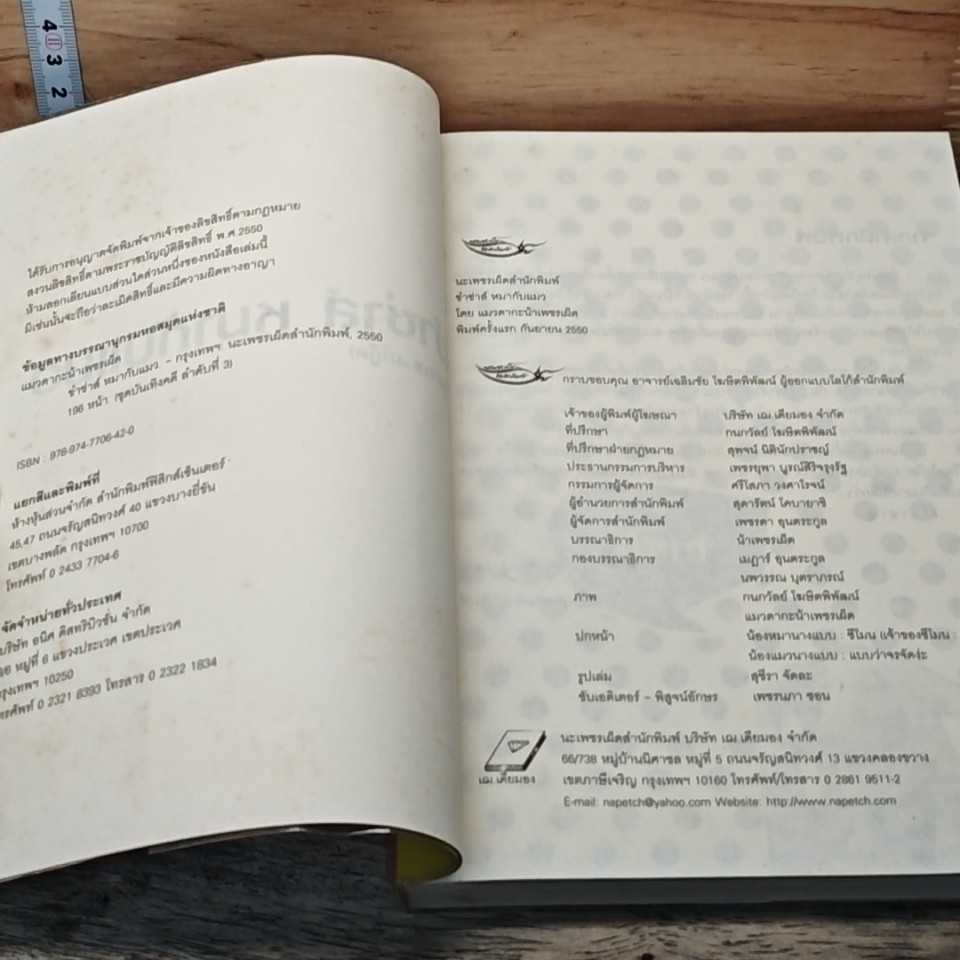 4
3
2
ได้รับการอนุญาตจัดพิมพ์จากเจ้าของลิขสิทธิ์ตามกฎหมาย
สงวนลิขสิทธิ์ตามพระราชบัญญัติลิขสิทธิ์ พ.ศ.2550
ห้ามลอกเลียนแบบส่วนใดส่วนหนึ่งของหนังสือเล่มนี้
มิเช่นนั้นจะถือว่าละเมิดสิทธิ์และมีความผิดทางอาญา
ข้อมูลทางบรรณานุกรมหอสมุดแห่งชาติ
แมวตากะน้าเพชรเผ็ด
ชำช่าส์ หมากับแมว. - กรุงเทพฯ: นะเพชรเผ็ดสำนักพิมพ์, 2550
196 หน้า. (ชุดบันเทิงคดี ลำดับที่ 3)
ISBN : 978-974-7706-42-0
แยกสีและพิมพ์ที่
ห้างหุ้นส่วนจำกัด สำนักพิมพ์ฟิสิกส์เซ็นเตอร์
45,47 ถนนจรัญสนิทวงศ์ 40 แขวงบางยี่ขัน
เขตบางพลัด กรุงเทพฯ 10700
โทรศัพท์ 0 2433 7704-6
จัดจำหน่ายทั่วประเทศ
บริษัท อนิศ ดิสทริบิวชั่น จำกัด
หมู่ที่ 6 แขวงประเวศ เขตประเวศ
กรุงเทพฯ 10250
โทรศัพท์ 0 2321 8393 โทรสาร 0 2322 1834
นะเพชรเผ็ดสำนักพิมพ์
ชำช่าส์ หมากับแมว
โดย แมวตากะน้าเพชรเผ็ด
พิมพ์ครั้งแรก กันยายน 2550
กราบขอบคุณ อาจารย์เฉลิมชัย โฆษิตพิพัฒน์ ผู้ออกแบบโลโก้สำนักพิมพ์
เจ้าของผู้พิมพ์ผู้โฆษณา บริษัท เฌ.เดียมอง จำกัด
ที่ปรึกษา กนกวัลย์ โฆษิตพิพัฒน์
ที่ปรึกษาฝ่ายกฎหมาย สุพจน์ นิตินักปราชญ์
ประธานกรรมการบริหาร เพชรยุพา บูรณ์สิริจรุงรัฐ
กรรมการผู้จัดการ ศรีโสภา วงศาโรจน์
ผู้อำนวยการสำนักพิมพ์ สุดารัตน์ โคนายาชิ
ผู้จัดการสำนักพิมพ์ เพชรดา อุนตระกูล
บรรณาธิการ น้าเพชรเผ็ด
กองบรรณาธิการ เมฎาร์ อุนตระกูล
นพวรรณ บุตราภรณ์
ภาพ กนกวัลย์ โฆษิตพิพัฒน์
แมวตากะน้าเพชรเผ็ด
ปกหน้า น้องหมานางแบบ : ซีโมน (เจ้าของซีโมน :
น้องแมวนางแบบ : แบบว่าจรจัดง่ะ
รูปเล่ม สุชีรา จัดละ
ซับเอดิเตอร์ - พิสูจน์อักษร เพชรนภา ซอน
เฌ.เดียมอง
นะเพชรเผ็ดสำนักพิมพ์ บริษัท เฌ.เดียมอง จำกัด
66/738 หมู่บ้านนิศาชล หมู่ที่ 5 ถนนจรัญสนิทวงศ์ 13 แขวงคลองขวาง
เขตภาษีเจริญ กรุงเทพฯ 10160 โทรศัพท์/โทรสาร 0 2861 9511-2
E-mail: napetch@yahoo.com Website: http://www.napetch.com